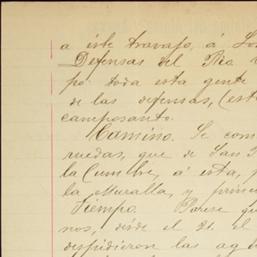 a este travajo, á Los
Defensas del Rio
po toda esta gente
de las defensas, (est
camposanto.
Camino. Se com
ruedas, que de San
la Cumbre, á esta, p
la Muralla, y princ
Tiempo. Parese qu
nos, desde el 21. el
despidieron las agu